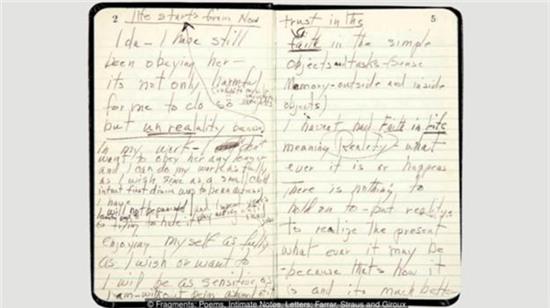 2 life starts from Now
Ida - I have still
been obeying her -
its not only harmful
for me to do so
but unreality because
In my work - I
want to obey her any longer
and I can do my work as fully
as I wish since as a small child
intact first desire was to be an actress
I have
I will not be punished
or trying to hide it
enjoying myself as fully
as I wish or want to
I will be as sensitive as
I am - without being ashamed
5
trust in the
faith in the simple
objects & tasks - Sense
Memory - outside and inside
objects)
I havent had Faith in Life
meaning Reality - what
ever it is or happens
There is nothing to
hold on to - but reality
to realize the present
what ever it may be
- because thats how it
is and its much better
© Fragments: Poems, Intimate Notes, Letters; Farrar, Straus and Giroux